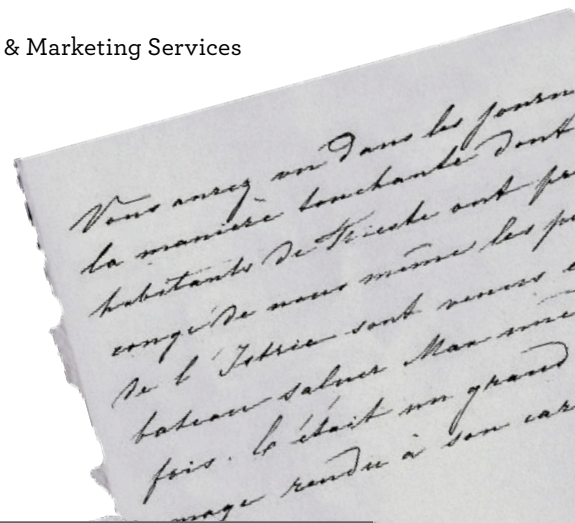 & Marketing Services
Vous aurez vu dans les journ
la manière touchante dont
habitants de Trieste ont pr
congé de nous même les p
de l'Istrie sont venus e
bateau saluer Max une
fois. C'était un grand
mage rendu à son car